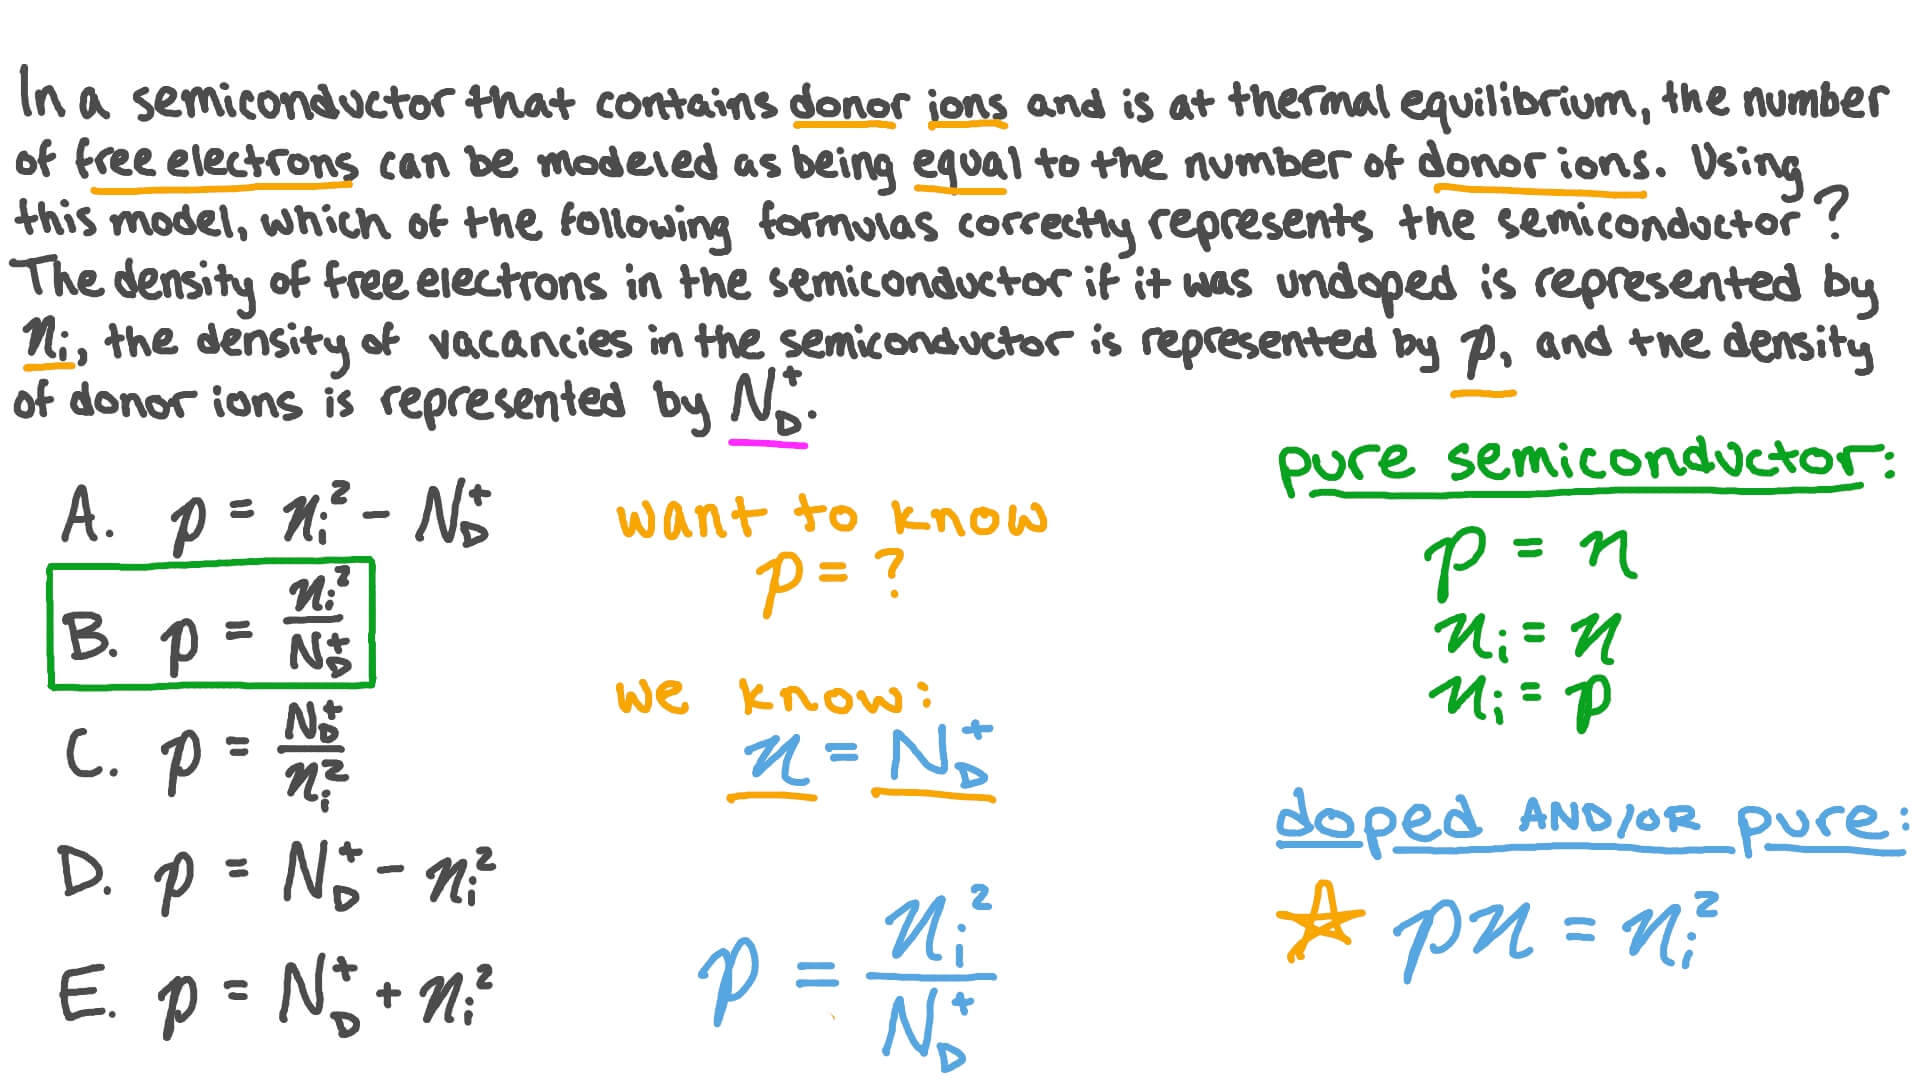 In a semiconductor that contains donor ions and is at thermal equilibrium, the number
of free electrons can be modeled as being equal to the number of donor ions. Using
this model, which of the following formulas correctly represents the semiconductor?
The density of free electrons in the semiconductor if it was undoped is represented by
nᵢ, the density of vacancies in the semiconductor is represented by p, and the density
of donor ions is represented by N_D⁺.
A. p = nᵢ² − N_D⁺
B. p = nᵢ² / N_D⁺
C. p = N_D⁺ / nᵢ²
D. p = N_D⁺ − nᵢ²
E. p = N_D⁺ + nᵢ²
want to know
p = ?
we know:
n = N_D⁺
p = nᵢ² / N_D⁺
pure semiconductor:
p = n
nᵢ = n
nᵢ = p
doped AND/OR pure:
☆ pn = nᵢ²